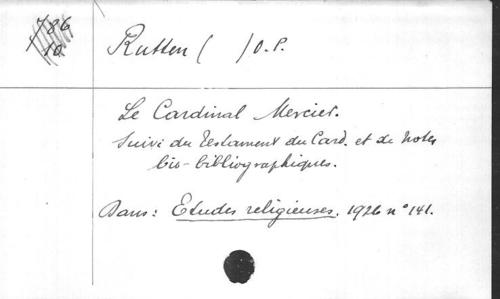 786
10
Rutten (      ) O. P.
Le Cardinal Mercier.
Suivi du Testament du Card. et de Notes
bio-bibliographiques.
Dans: Etudes religieuses, 1926 n° 141.